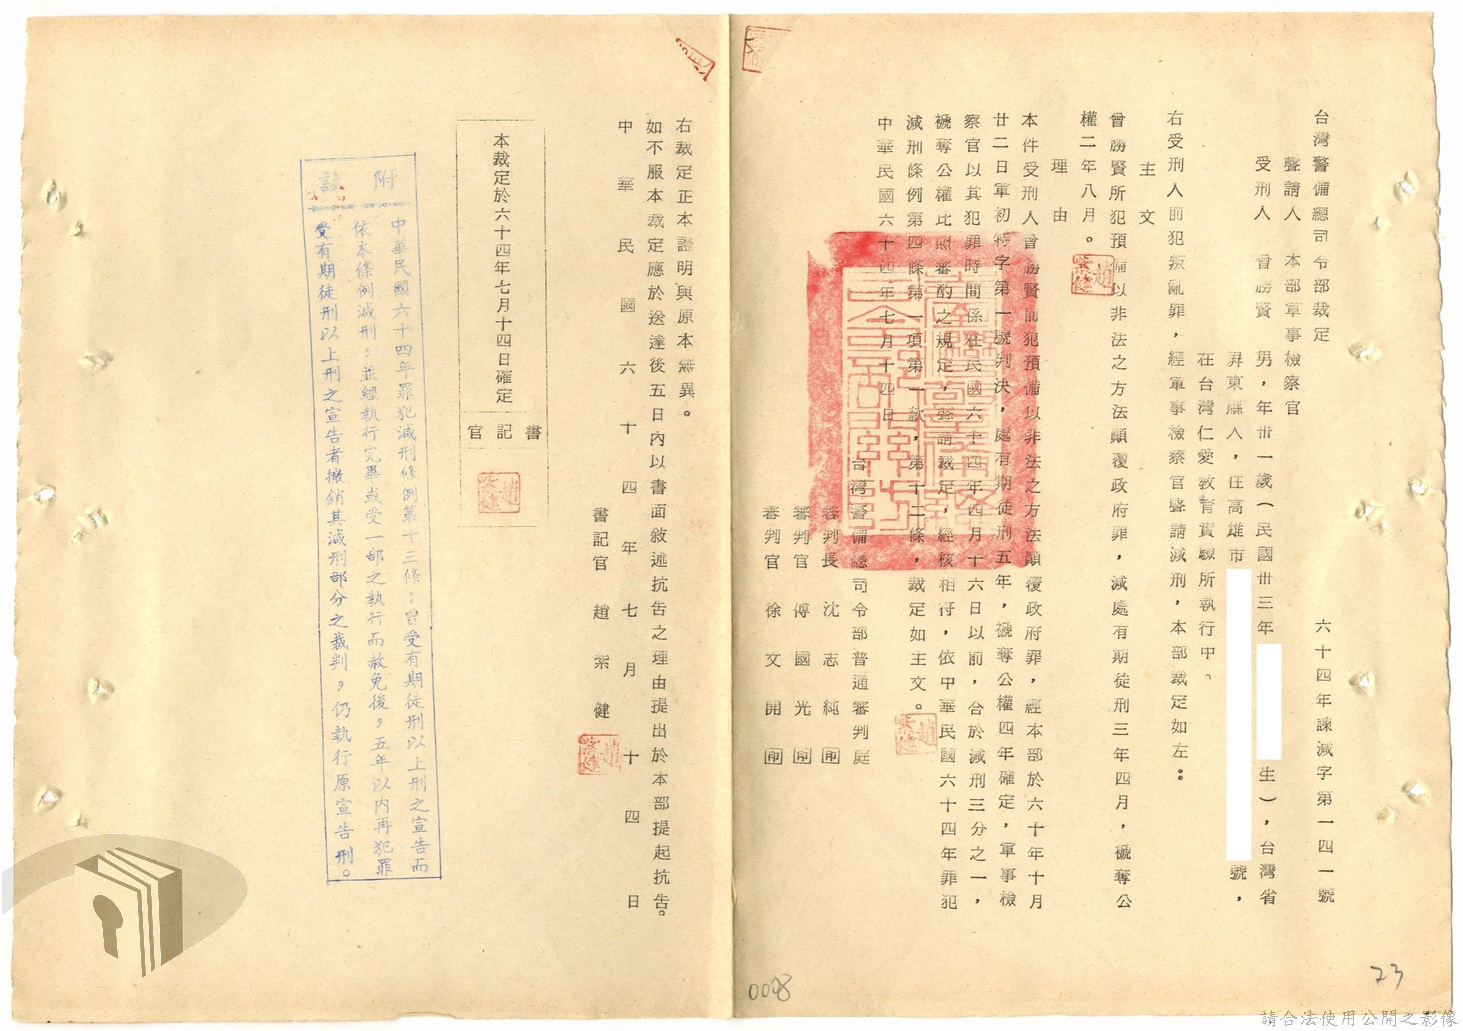 台灣警備總司令部裁定　六十四年諫減字第一四一號
聲請人　本部軍事檢察官
受刑人　曾勝賢　男，年卅一歲（民國卅三年　生），台灣省
屏東縣人，住高雄市　號，
在台灣仁愛教育實驗所執行中。
右受刑人前犯叛亂罪，經軍事檢察官聲請減刑，本部裁定如左：
主文
曾勝賢所犯預備以非法之方法顛覆政府罪，減處有期徒刑三年四月，褫奪公
權二年八月。
理由
本件受刑人曾勝賢前犯預備以非法之方法顛覆政府罪，經本部於六十年十月
廿二日軍初特字第一號判決，處有期徒刑五年，褫奪公權四年確定，軍事檢
察官以其犯罪時間係在民國六十四年四月十六日以前，合於減刑三分之一，
褫奪公權比照審酌之規定，聲請裁定，經核相符，依中華民國六十四年罪犯
減刑條例第四條第一項第一款，第十二條，裁定如主文。
中華民國六十四年七月十四日
台灣警備總司令部普通審判庭
審判長　沈志純　印
審判官　傅國光　印
審判官　徐文開　印
右裁定正本證明與原本無異。
如不服本裁定應於送達後五日內以書面敘述抗告之理由提出於本部提起抗告。
中華民國六十四年七月十四日
書記官　趙縈健
本裁定於六十四年七月十四日確定
書記官
附註
中華民國六十四年罪犯減刑條例第十三條：曾受有期徒刑以上刑之宣告而
依本條例減刑，並經執行完畢或受一部之執行而赦免後，五年以內再犯罪
受有期徒刑以上刑之宣告者撤銷其減刑部分之裁判，仍執行原宣告刑。
0008
23
請合法使用公開之影像